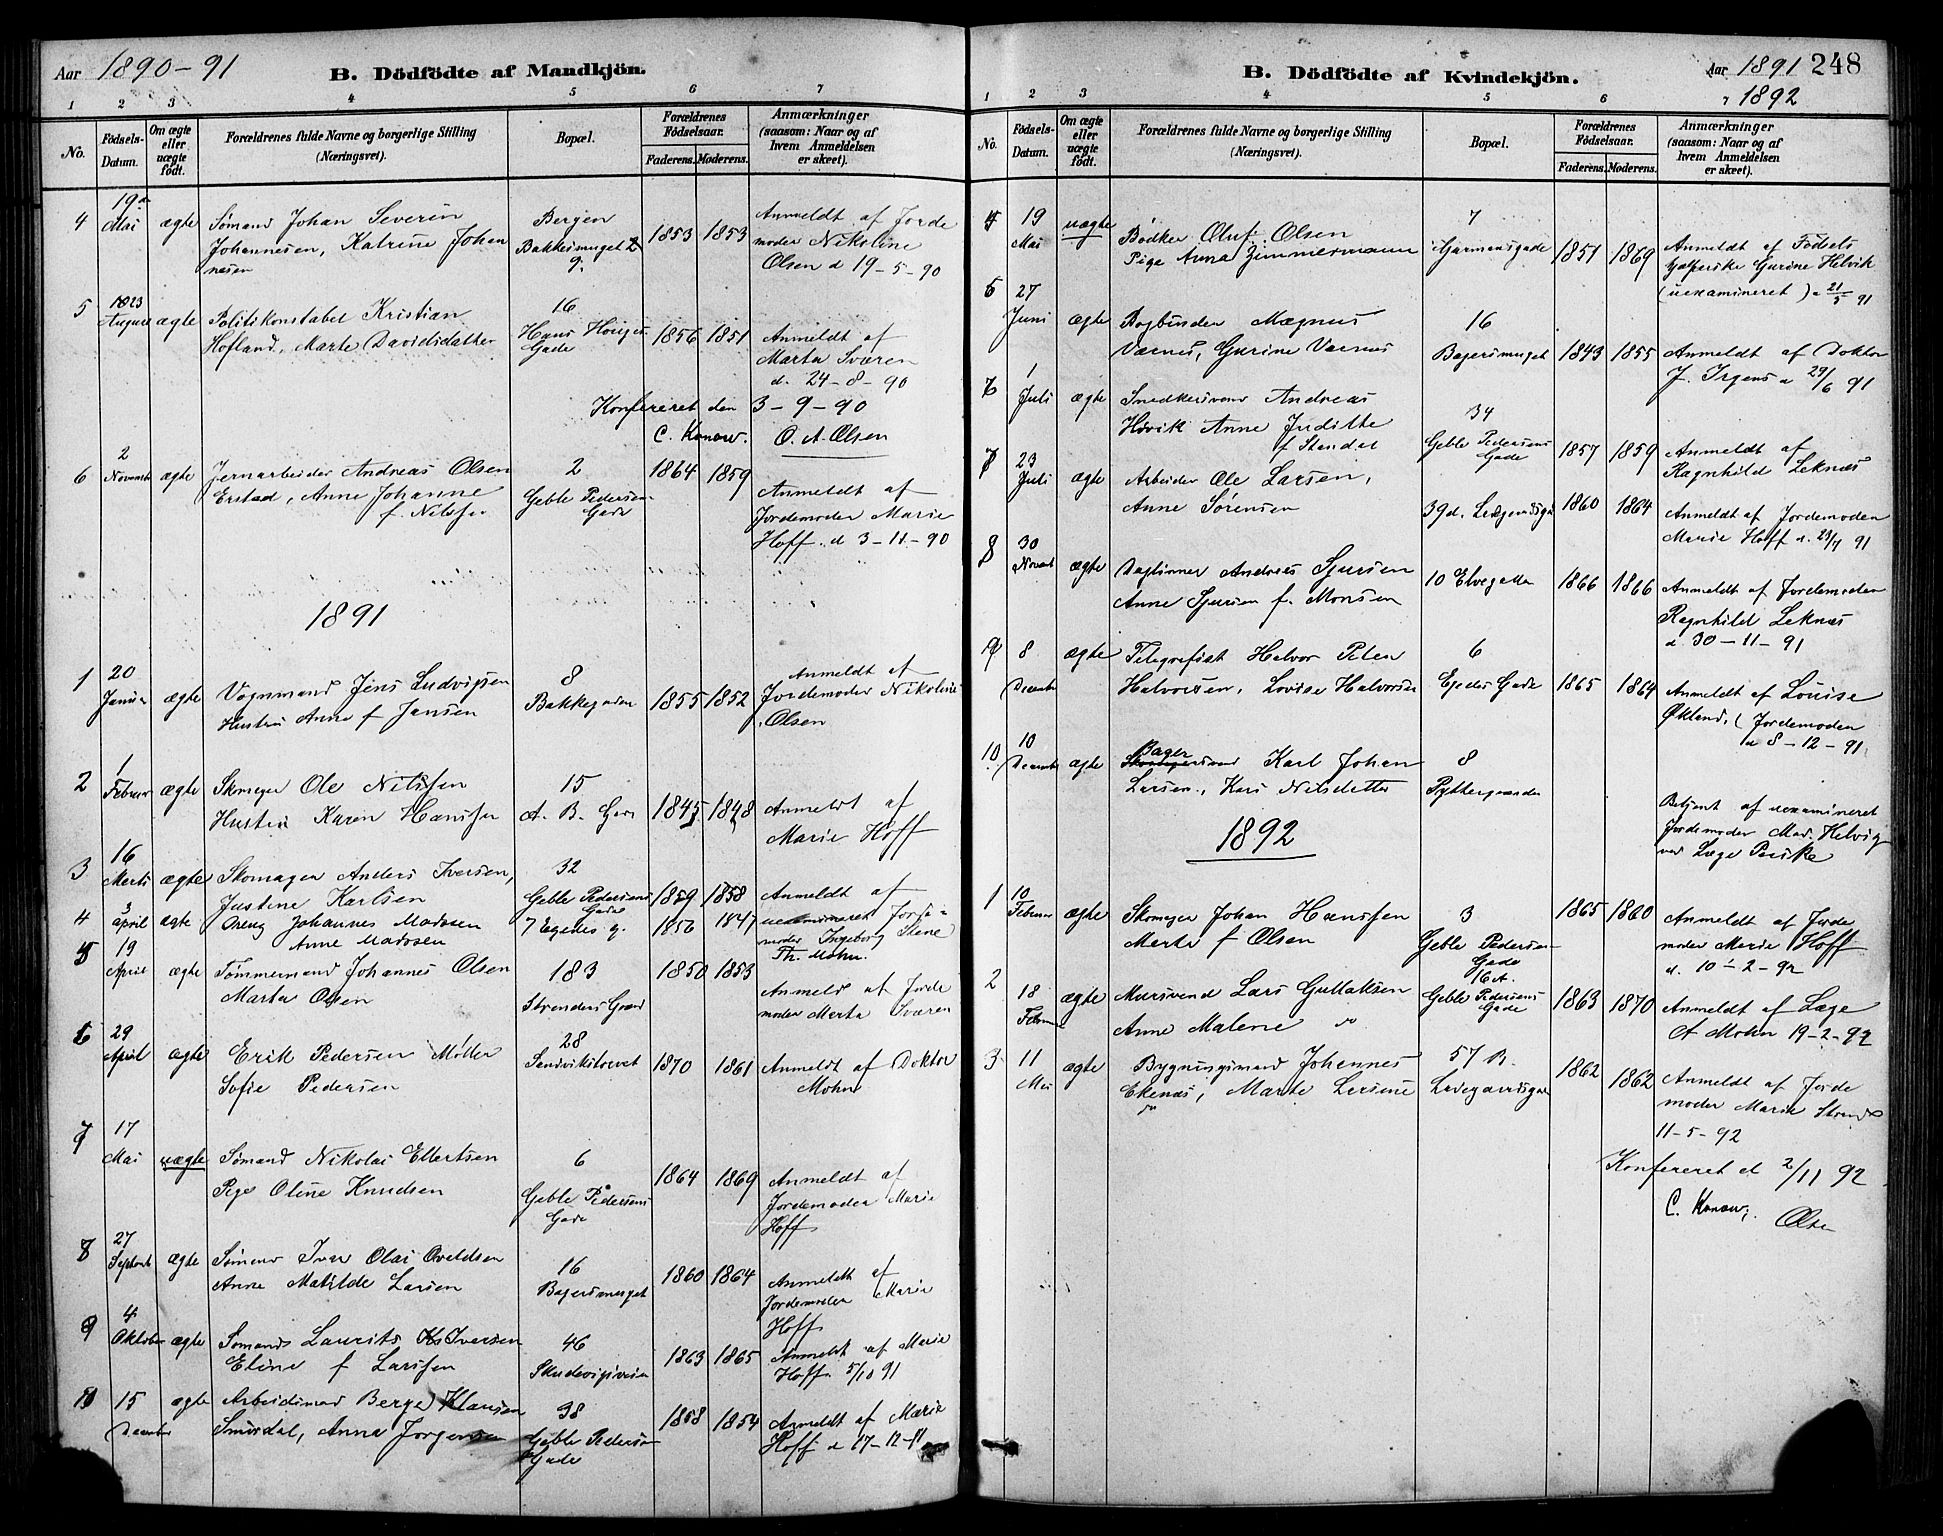 Aar 1890-91
B. Dödfödte af Mandkjön.
1 2 3 4 5 6 7
No.
Födsels-Datum.
Om ægte eller uægte födt.
Forældrenes fulde Navne og borgerlige Stilling (Næringsvei).
Bopæl.
Forældrenes Födselsaar.
Faderens. Moderens.
Anmærkninger (saasom: Naar og af hvem Anmeldelsen er skeet).
4 19 Mai ægte Sømand Johan Severin
Johannesen, Katrine Johan
nesen
Bergen
Bakkesmuget
9.
1853 1853
Anmeldt af Jorde
moder Nikoline
Olsen d 19-5-90
5 23 August ægte Politikonstabel Kristian
Hofland, Marte Davidsdatter
16
Hans Hauges
Gade
1856 1851
Anmeldt af
Marta Sværen
d. 24-8-90
Konfereret den 3-9-90
C. Konow. O. A. Olsen
6 2 Novemb ægte Jernarbeider Andreas Olsen
Erstad, Anne Johanne
f. Nilssen
2
Geble Pedersens
Gade
1864 1859
Anmeldt af
Jordemoder Marie
Hoff. d 3-11-90
1891
1 20 Januar ægte Vognmand Jens Ludvigsen
Hustru Anne f Jansen
8
Bakkegaden
1855 1852
Anmeldt af
Jordemoder Nikoline
Olsen
2 1 Februar ægte Skomager Ole Nilssen
Hustru Karen Hanssen
15
A. B. Gade
1845 1848
Anmeldt af
Marie Hoff
3 16 Marts ægte Skomager Anders Iversen,
Justine Karlsen
32
Geble Pedersens
Gade
1859 1858
Anmeldt af
uexamineret Jorde-
moder Ingeborg Stene
4 3 april ægte Dreng Johannes Madssen
Anne Madssen
7 Egedes g.
1856 1847
Th. Mohn.
5 19 April ægte Tømmermand Johannes Olsen
Marta Olsen
183
1850 1853
Anmeldt af Jorde
moder Marta Sværen
6 29 April ægte Erik Pedersen Møller
Sofie Pedersen
28
Sandvikstorvet
1870 1861
Anmeldt af Doktor
Mohn
7 17 Mai uægte Sømand Nikolai Ellertsen
Pige Oline Knudsen
6
Geble Pedersens
Gade
1864 1869
Anmeldt af
Jordemoder Marie
Hoff
8 27 Septemb ægte Sømand Iver Olai Oveldsen
Anne Matilde Larsen
16
Bagersmuget
1860 1864
Anmeldt af
Jordemoder Marie
Hoff
9 4 Oktober ægte Sømand Laurits Iversen
Eline f Larssen
46
Skudevigsveien
1863 1865
Anmeldt af Marie
Hoff. 5/10 91
10 15 December ægte Arbeidsmand Berge Klausen
Smørdal, Anna Jørgensen
38
Geble Pedersens
Gade
1858 1854
Anmeldt af Marie
Hoff d 17-12-91
B. Dödfödte af Kvindekjön.
Aar 1891 248
1892
1 2 3 4 5 6
No.
Födsels-Datum.
Om ægte eller uægte födt.
Forældrenes fulde Navne og borgerlige Stilling (Næringsvei).
Bopæl.
Forældrenes Födselsaar.
Faderens. Moderens.
Anmærkninger (saasom: Naar og af hvem Anmeldelsen er skeet).
4 19 Mai uægte Bødker Oluf Olsen
Pige Anna Zimmermann
7
Garmansgade
1851 1869
Anmeldt af Fødsels
hjælperske Gurine Helvik
(uexamineret) d 21/5 91
5 27 Juni ægte Bogbinder Magnus
Varnes, Gurine Varnes
16
Bagersmuget
1843 1855
Anmeldt af Doktor
J. Irgens d 29/6 91
6 1 Juli ægte Snedkersvend Andreas
Hovik Anne Juditte
f Standal
34
Geble Pedersens
Gade
1857 1859
Anmeldt af
Ragnhild Leknæs
7 23 Juli ægte Arbeider Ole Larsen,
Anne Sørensen
39d. Ladegaardsg
1860 1864
Anmeldt af Jordemoder
Marie Hoff d. 23/7 91
8 30 Novemb ægte Dagløner Andreas Sjursen
Anne Sjursen f. Monsen
10 Elvegaden
1866 1866
Anmeldt af Jordemoder
Ragnhild Leknæs
d 30-11-91
9 8 December ægte Telegrafist Halvor Peter
Halvorsen, Lovise Halvorsen
6
Egedes Gade
1865 1864
Anmeldt af Louise
Økland, (Jordemoder
d 8-12-91
10 10 December ægte Bager svend Karl Johan
Larsen, Kari Nilsdatter
8
Pyttergaarden
Betjent af uexamineret
Jordemoder Mad. Helvig
ved Læge Paaske
1892
1 10 Februar ægte Skomager Johan Hanssen
Marta f Olsen
3
Geble Pedersens
Gade
1865 1860
Anmeldt af Jorde
moder Marie Hoff
d. 10-2-92
2 18 Februar ægte Mursvend Lars Gullaksen
Anne Malene do
16 A.
Geble Pedersens
Gade
1863 1870
Anmeldt af Læge
A Mohn 19-2-92
3 11 Mai ægte Bygningsmand Johannes
Ekenæs, Marte Larsine
do
57 B.
Ladegaardsgade
1862 1862
Anmeldt af Jorde
moder Marie Strand
11-5-92
Konfereret d 2/11 92
C. Konow, Olsen